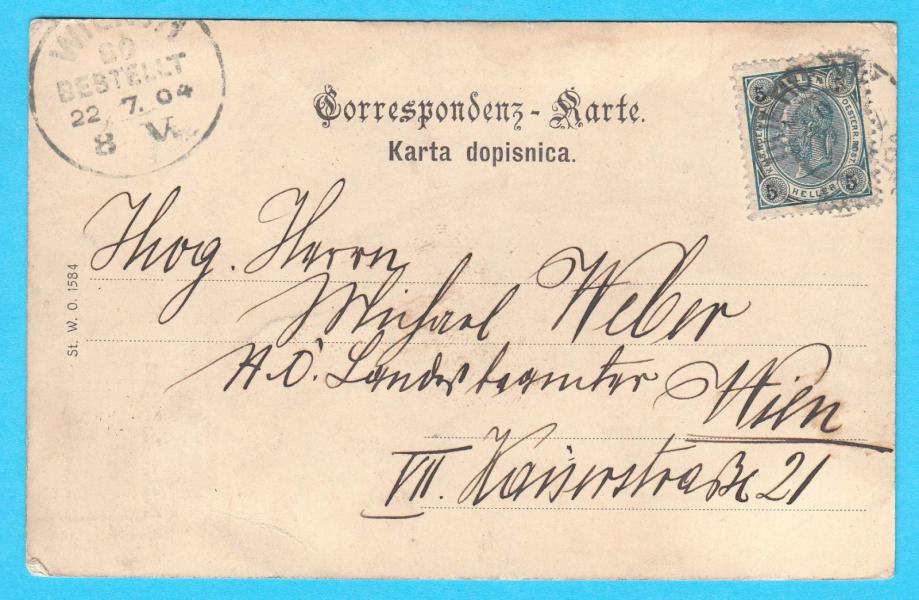 WIEN
BESTELLT
22. 7. 04
8 V.
Correspondenz-Karte.
Karta dopisnica.
5 5
5 HELLER 5
St. W. O. 1584
Herrn
Michael Weber
N.Ö. Landesbeamter Wien
VII. Kaiserstraße 21